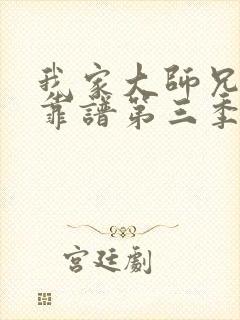 我家大師兄
靠譜第三季
宮廷劇